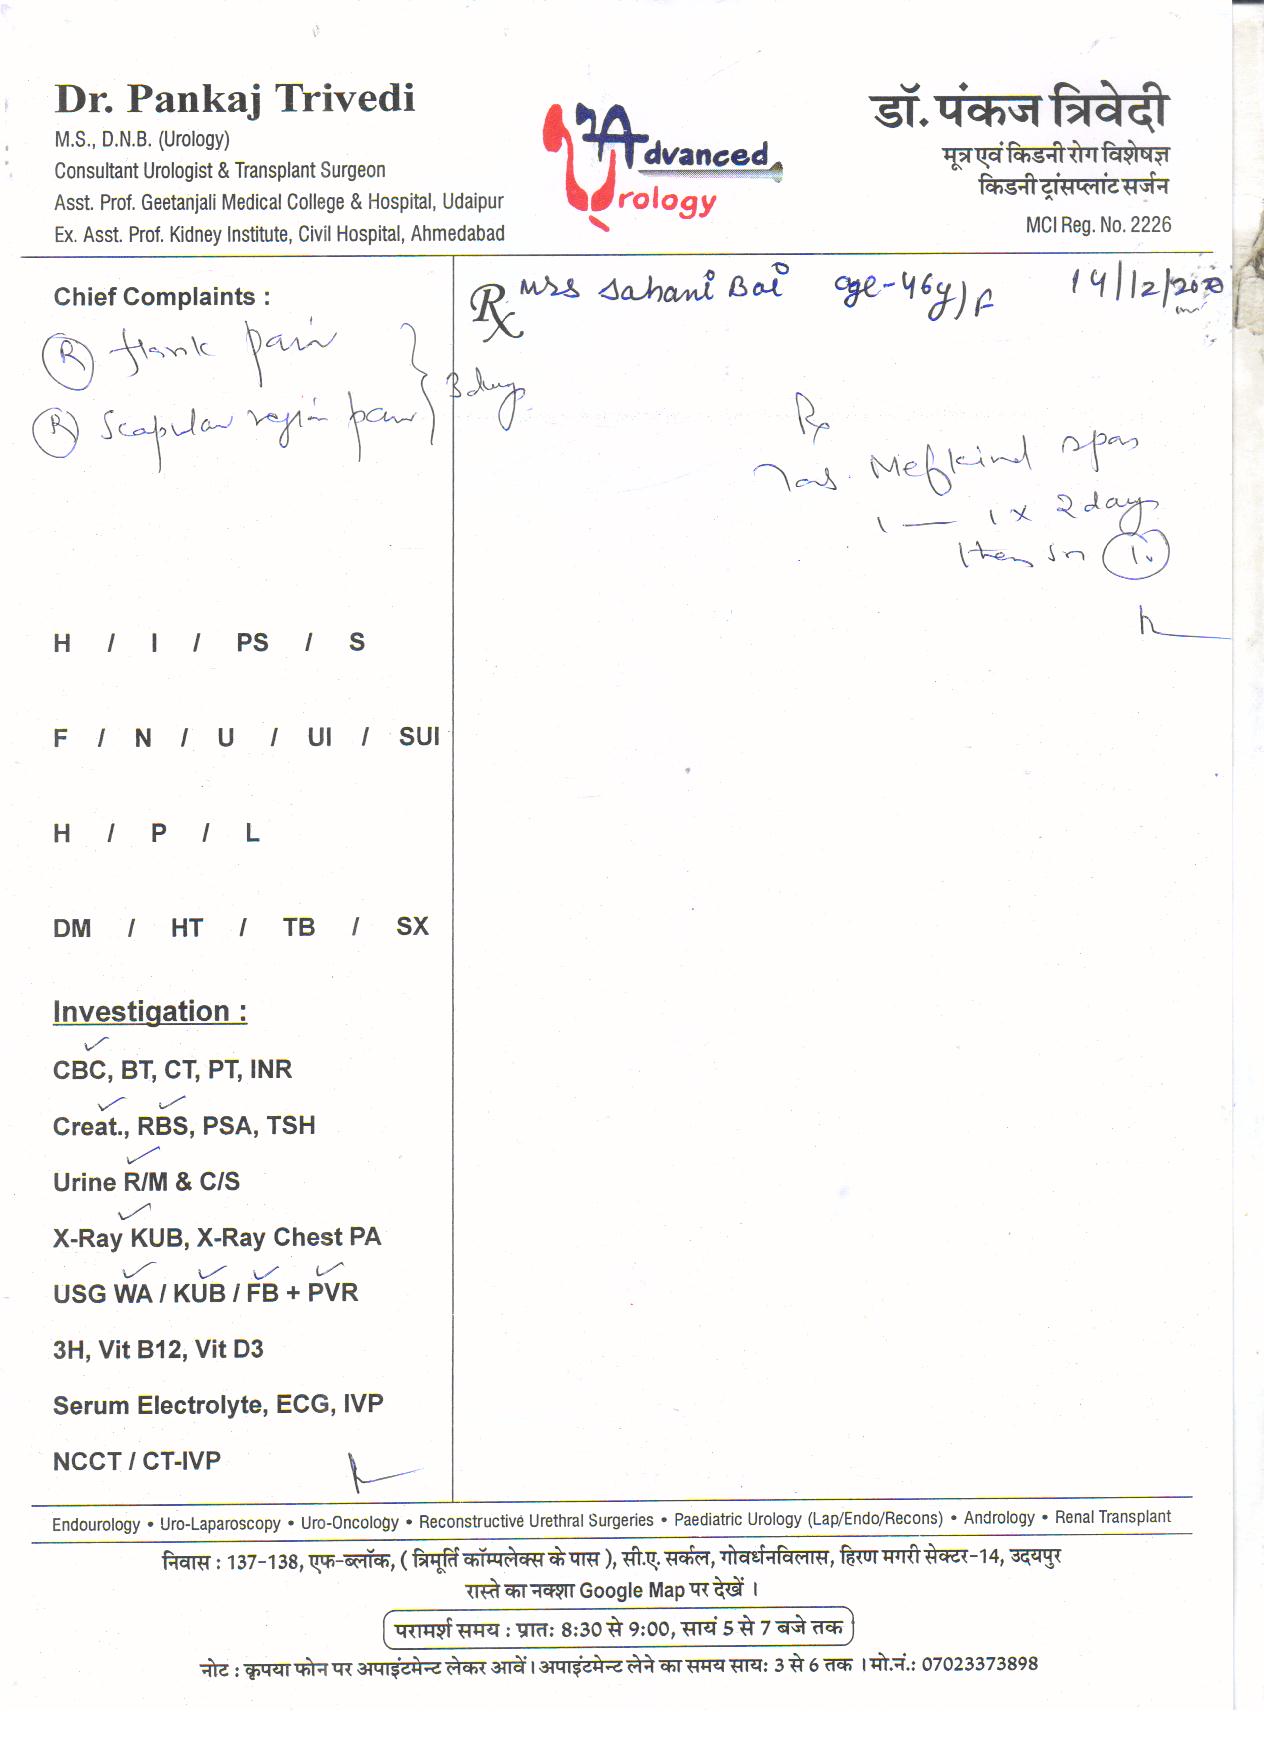 Dr. Pankaj Trivedi
M.S., D.N.B. (Urology)
Consultant Urologist & Transplant Surgeon
Asst. Prof. Geetanjali Medical College & Hospital, Udaipur
Ex. Asst. Prof. Kidney Institute, Civil Hospital, Ahmedabad
Advanced
Urology
डॉ. पंकज त्रिवेदी
मूत्र एवं किडनी रोग विशेषज्ञ
किडनी ट्रांसप्लांट सर्जन
MCI Reg. No. 2226
Rx Mrs Sahani Bai age-46y/F 14/12/2020
Chief Complaints :
(R) flank pain
(R) Scapular region pain } 3 days
Rx
Tab. Mefkind spas
1 — 1 x 2 days
then
H / I / PS / S
F / N / U / UI / SUI
H / P / L
DM / HT / TB / SX
Investigation :
CBC, BT, CT, PT, INR
Creat., RBS, PSA, TSH
Urine R/M & C/S
X-Ray KUB, X-Ray Chest PA
USG WA / KUB / FB + PVR
3H, Vit B12, Vit D3
Serum Electrolyte, ECG, IVP
NCCT / CT-IVP
Endourology • Uro-Laparoscopy • Uro-Oncology • Reconstructive Urethral Surgeries • Paediatric Urology (Lap/Endo/Recons) • Andrology • Renal Transplant
निवास : 137-138, एफ-ब्लॉक, ( त्रिमूर्ति कॉम्पलेक्स के पास ), सी.ए. सर्कल, गोवर्धनविलास, हिरण मगरी सेक्टर-14, उदयपुर
रास्ते का नक्शा Google Map पर देखें ।
परामर्श समय : प्रातः 8:30 से 9:00, सायं 5 से 7 बजे तक
नोट : कृपया फोन पर अपाइंटमेन्ट लेकर आवें । अपाइंटमेन्ट लेने का समय सायः 3 से 6 तक । मो.नं.: 07023373898